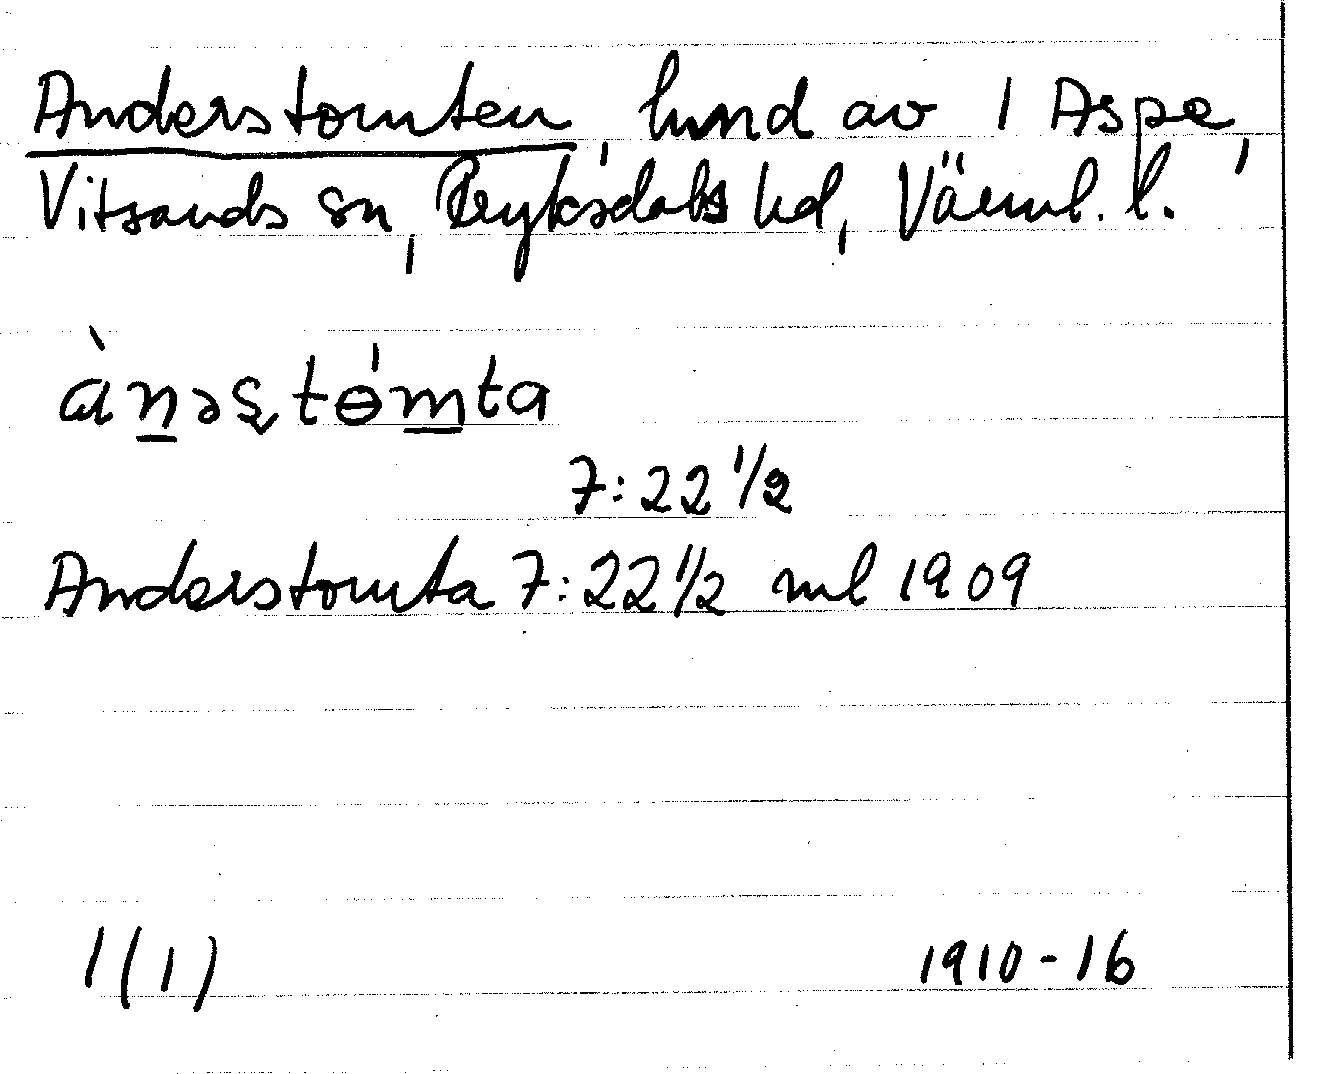 Anderstomten, hmnd av 1 Aspe,
Vitsands sn, Fryksdals hd, Värml. l.
à̀n̲əʂtɵ́m̲ta
7:22 1/2
Anderstomta 7:22 1/2 ml 1909
1(1) 1910-16